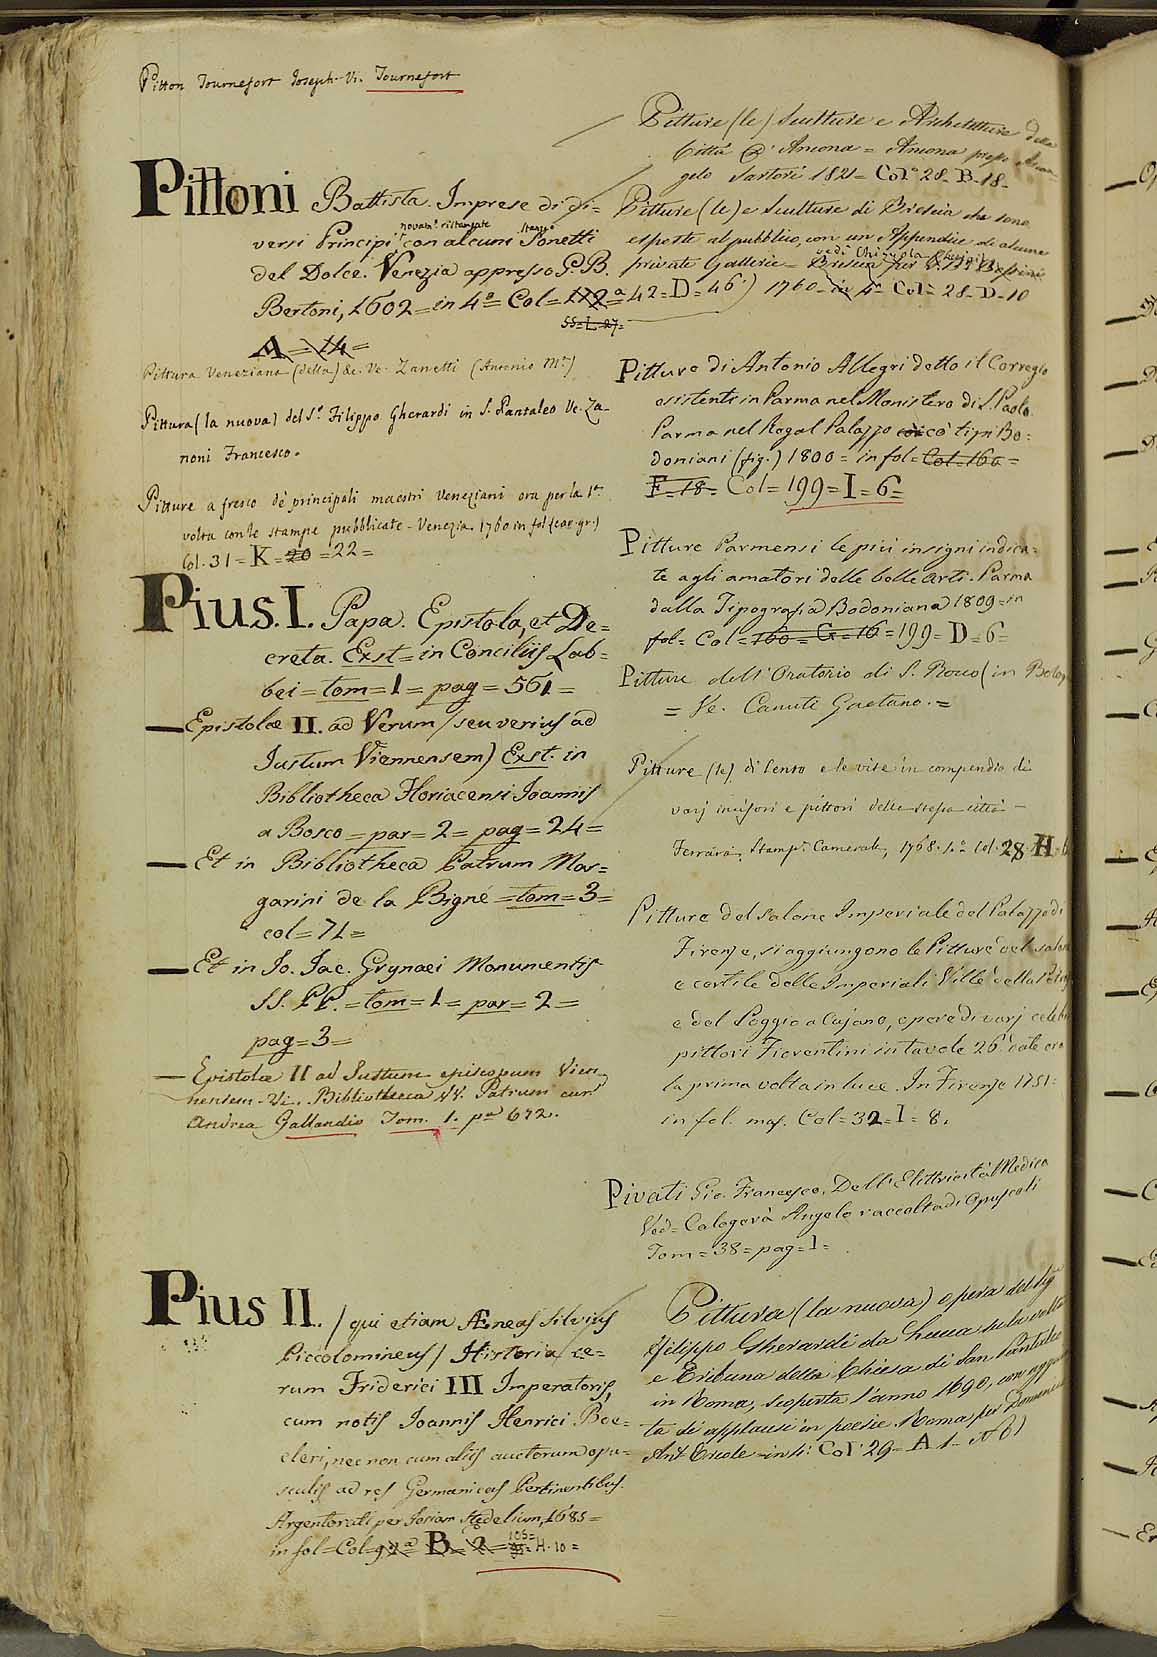 Pitton Tournefort Joseph. Vi. Tournefort
Pittoni Battista. Imprese di di=
versi Principi novam.e ristampate con alcuni Stanze Sonetti
del Dolce. Venezia appresso G. B.
Bertoni, 1602 = in 4.º = Col = 112ª 42 = D = 46
55 = L. 27 =
A = 14 =
Pittura Veneziana (della) &c. Ve. Zanetti (Antonio M.ª)
Pittura (la nuova) del S.r Filippo Gherardi in S. Pantaleo Ve. Za-
noni Francesco.
Pitture a fresco de' principali maestri Veneziani ora per la 1.ª
volta con le stampe pubblicate - Venezia. 1760 in fol (car. gr.)
Col. 31 = K = 20 = 22 =
Pius. I. Papa. Epistola, et De=
creta. Exst = in Conciliis Lab=
bei = tom = 1 = pag = 561 =
— Epistolæ II. ad Verum / seu verius ad
Justum Viennensem) Exst. in
Bibliotheca Floriacensi Joannis
a Bosco = par = 2 = pag = 24 =
— Et in Bibliotheca Patrum Mar=
garini de la Bigné = tom = 3 =
col = 71 =
— Et in Jo. Jac. Grynaei Monumentis
SS. PP. = tom = 1 = par = 2 =
pag = 3 =
— Epistolæ II ad Justum episcopum Vien
nensem - Vi. Bibliotheca VV. Patrum cur.
Andrea Gallandio Tom. 1. pª 672.
Pius II. / qui etiam Æneas Silvius
Piccolomineus / Historia re=
rum Friderici III Imperatoris,
cum notis Joannis Henrici Boe=
cleri, nec non cum aliis auctorum opu=
sculis ad res Germanicas Pertinentibus.
Argentorati per Josiam Stædelium, 1685 =
in fol = Col = 92ª B = 2 = 106 = H. 10 =
Pitture (le) Sculture e Architetture della
Città d'Ancona = Ancona presso Arcan-
gelo Sartori 1821 = Col.º 28 - B - 18 -
Pitture (le) e Sculture di Brescia che sono
esposte al pubblico, con un Appendice di alcune
private Gallerie = Brescia per G. B. Bossini
vedi Chizzola
1760 - in 4º Col = 28 - D - 10
Pitture di Antonio Allegri detto il Corregio
esistenti in Parma nel Monistero di S. Paolo.
Parma nel Regal Palazzo co' tipi Bo=
doniani (fig.) 1800 = in fol = Col = 160 =
F = 18 = Col = 199 = I = 6 =
Pitture Parmensi le più insigni indica=
te agli amatori delle belle arti. Parma
dalla Tipografia Bodoniana 1809 = in
fol = Col = 160 = G = 16 = 199 = D = 6 =
Pitture dell'Oratorio di S. Rocco (in Bolog
= Ve. Canuti Gaetano. =
Pitture (le) di Cento e le vite in compendio di
varj incisori e pittori della stessa città -
Ferrara, Stamp.ª Camerale, 1768. Col. 28 H. 6
Pitture del salone Imperiale del Palazzo di
Firenze, si aggiungono le Pitture del salone
e cortile delle Imperiali Ville della Petraja
e del Poggio a Cajano, opere di varj celebri
pittori Fiorentini in tavole 26 date ora
la prima volta in luce. In Firenze 1751 =
in fol. maj. Col = 32 = I = 8.
Pivati Gio. Francesco. Dell'Elettricità Medica
Ved = Calogerà Angelo raccolta di Opuscoli
Tom = 38 = pag = 1 =
Pittura (la nuova) opera del Sig.r
Filippo Gherardi da Lucca sulla volta
e Tribuna della Chiesa di San Pantaleo
in Roma, scoperta l'anno 1690, con aggiun
ta di applausi in poesie. Roma per Domenico
Ant. Ercole = in 4º Col 29 - A 1 - N 6)